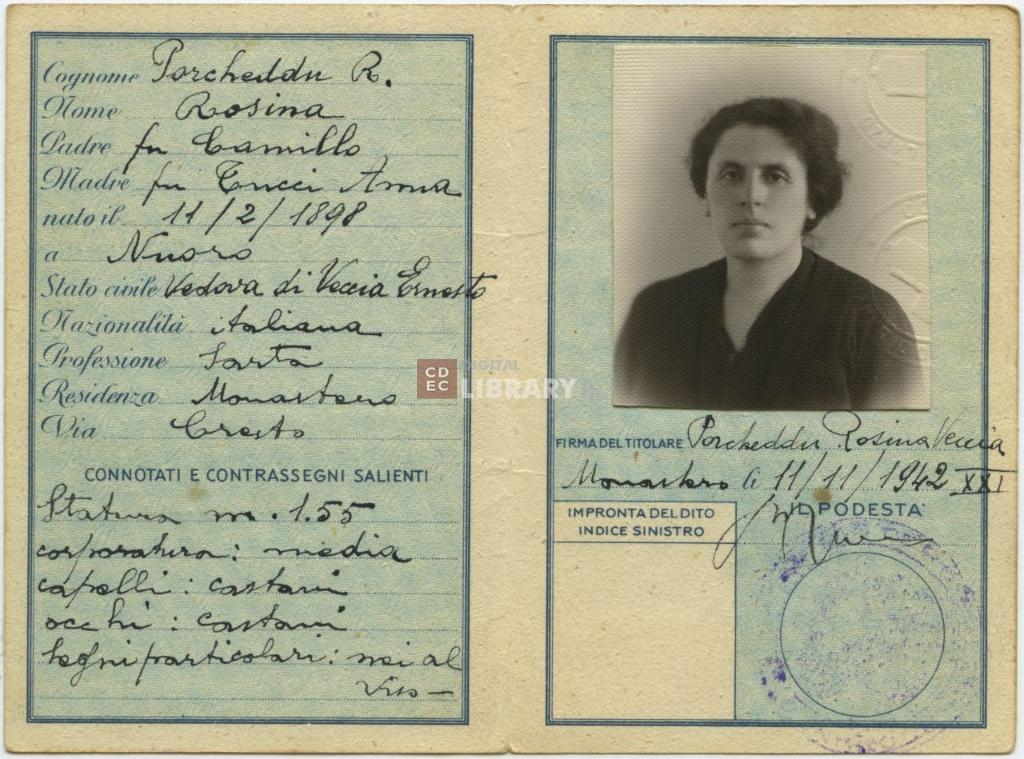 Cognome Porcheddu R.
Nome Rosina
Padre fu Camillo
Madre fu Tucci Anna
nato il 11/2/1898
a Nuoro
Stato civile Vedova di Veccia Ernesto
Nazionalità italiana
Professione Sarta
Residenza Monastero
Via Cresto
CONNOTATI E CONTRASSEGNI SALIENTI
Statura m. 1.55
corporatura: media
capelli: castani
occhi: castani
segni particolari: nei al
viso —
CD
EC
DIGITAL
LIBRARY
FIRMA DEL TITOLARE Porcheddu Rosina Veccia
Monastero li 11/11/1942 XXI
IL PODESTA'
IMPRONTA DEL DITO
INDICE SINISTRO